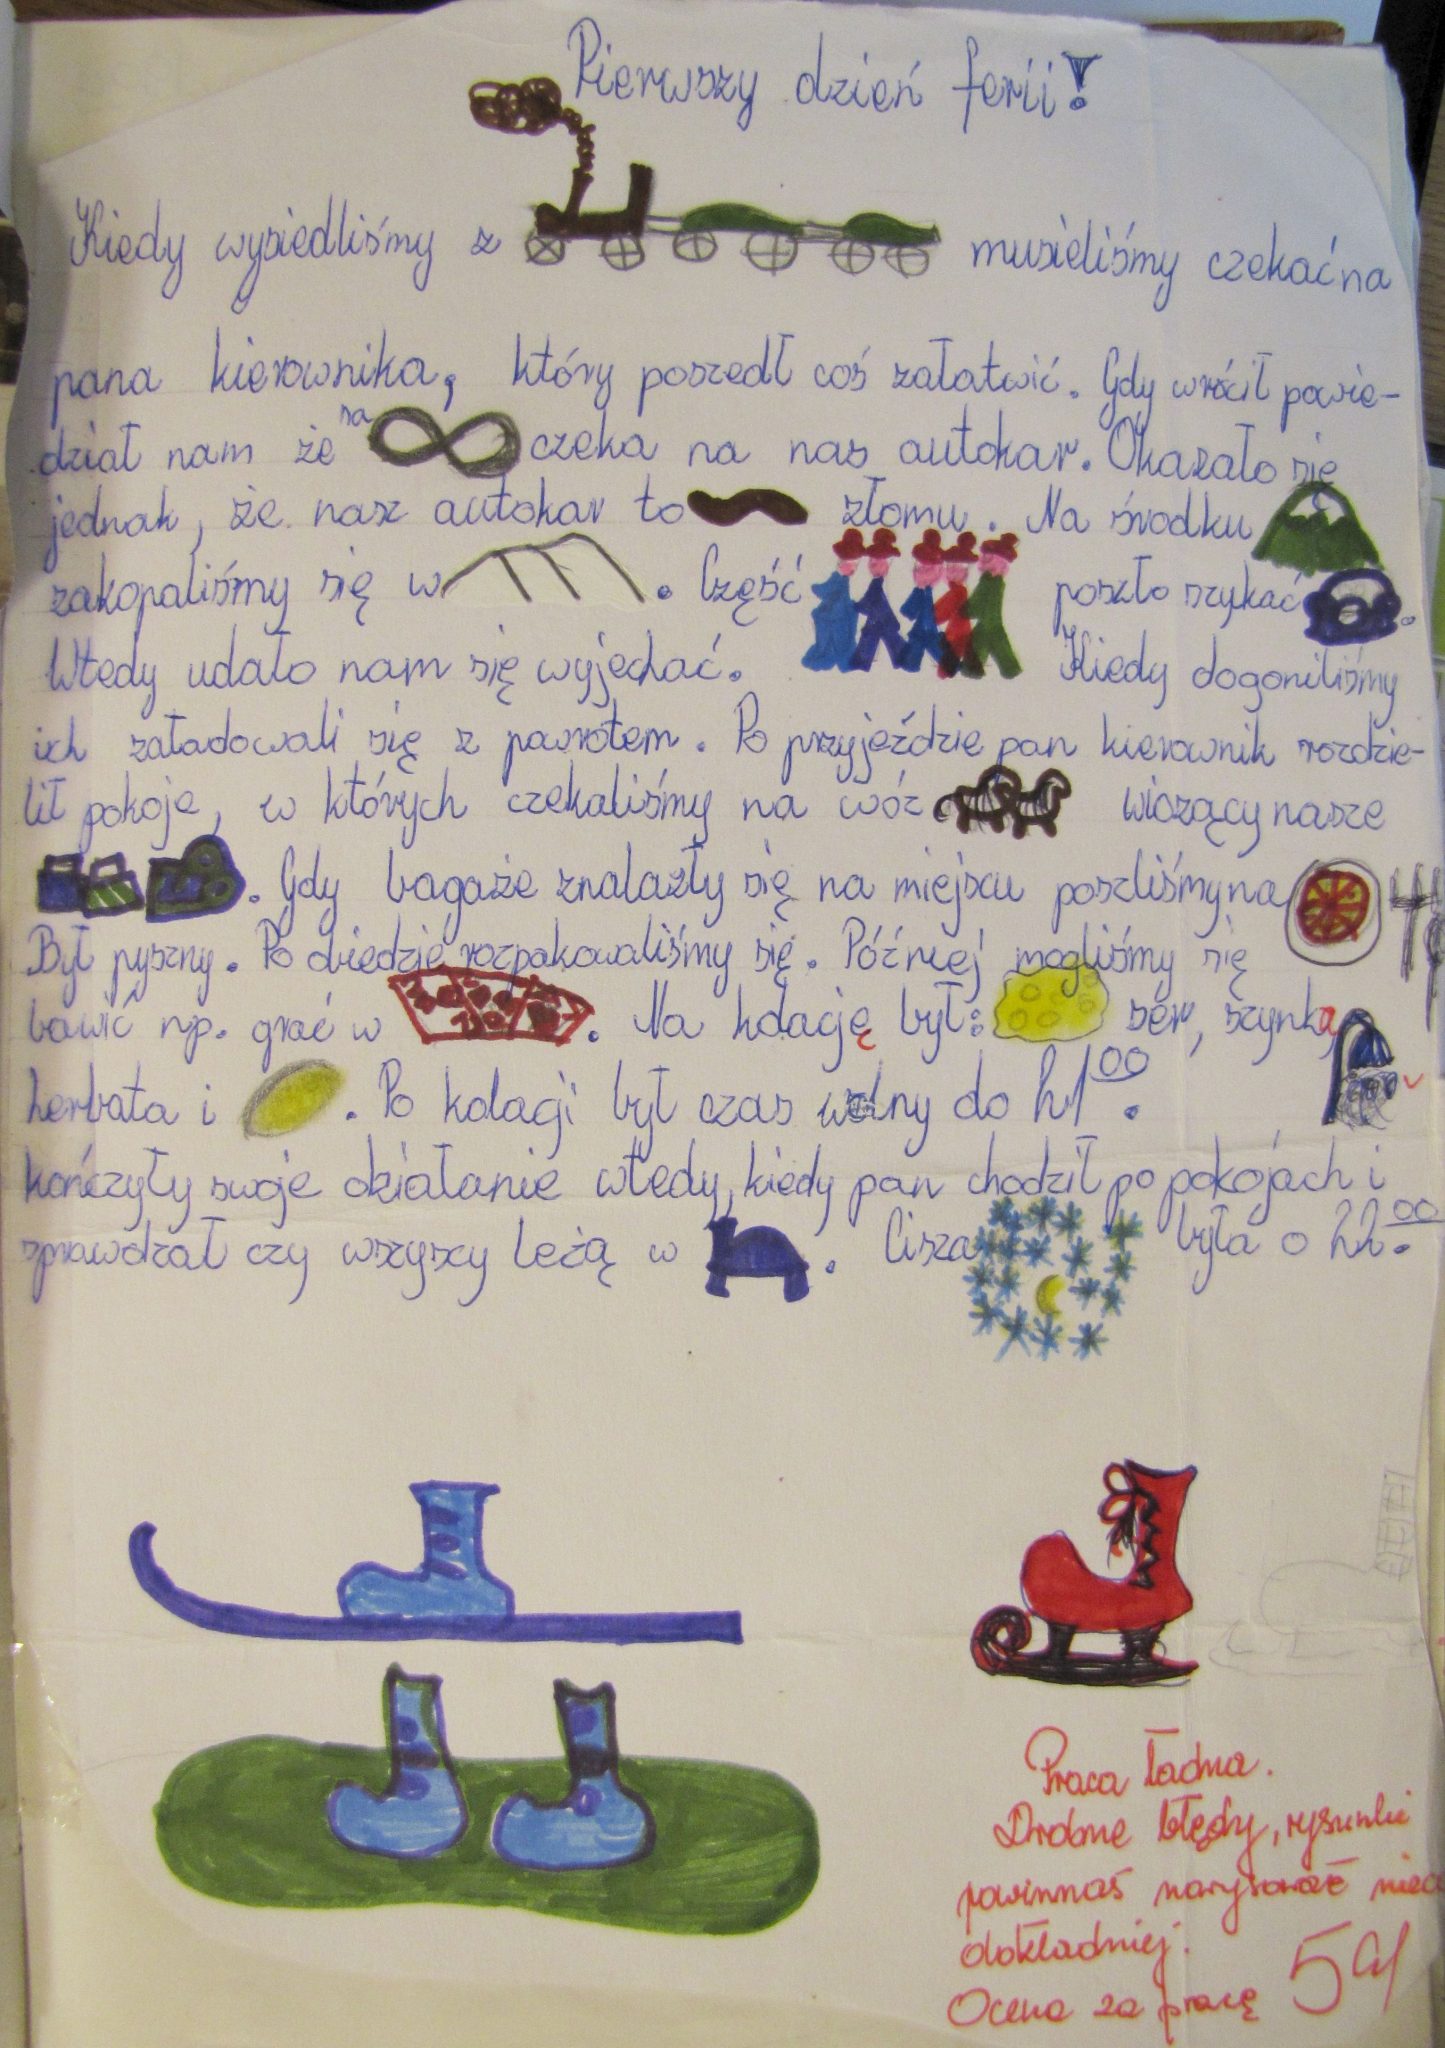 Pierwszy dzień ferii!
Kiedy wysiedliśmy z musieliśmy czekać na
pana kierownika, który poszedł coś załatwić. Gdy wrócił powie-
dział nam że za czeka na nas autokar. Okazało się
jednak, że nasz autokar to złomu. Na środku
zakopaliśmy się w . Część poszło szykać .
Wtedy udało nam się wyjechać. Kiedy dogoniliśmy
ich załadowali się z pawrotem. Po przyjeździe pan kierownik rozdzie-
lił pokoje, w których czekaliśmy na wóz wiozący nasze
. Gdy bagaże znalazły się na miejscu poszliśmy na
Był pyszny. Po obiedzie rozpakowaliśmy się. Później mogliśmy się
bawić np. grać w . Na kolację był: ser, szynka,
herbata i . Po kolagi był czas wolny do 21 00.
kończyły swoje działanie wtedy, kiedy pan chodził po pokojach i
sprawdzał czy wszyscy leżą w . Cisza była o 22 00.
Praca ładna.
Drobne błędy, rysunki
powinnaś narysować
dokładniej.
Ocena za pracę 5